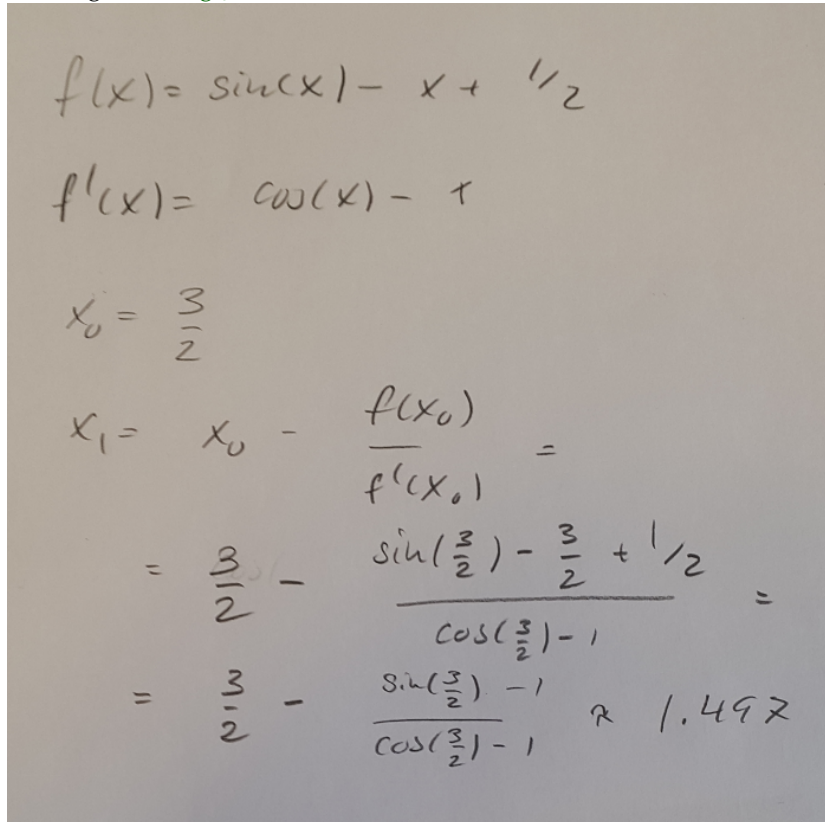 f(x) = sin(x) - x + 1/2
f'(x) = cos(x) - 1
x₀ = 3/2
x₁ = x₀ - f(x₀)/f'(x₀) =
= 3/2 - (sin(3/2) - 3/2 + 1/2)/(cos(3/2) - 1) =
= 3/2 - (sin(3/2) - 1)/(cos(3/2) - 1) ≈ 1.497